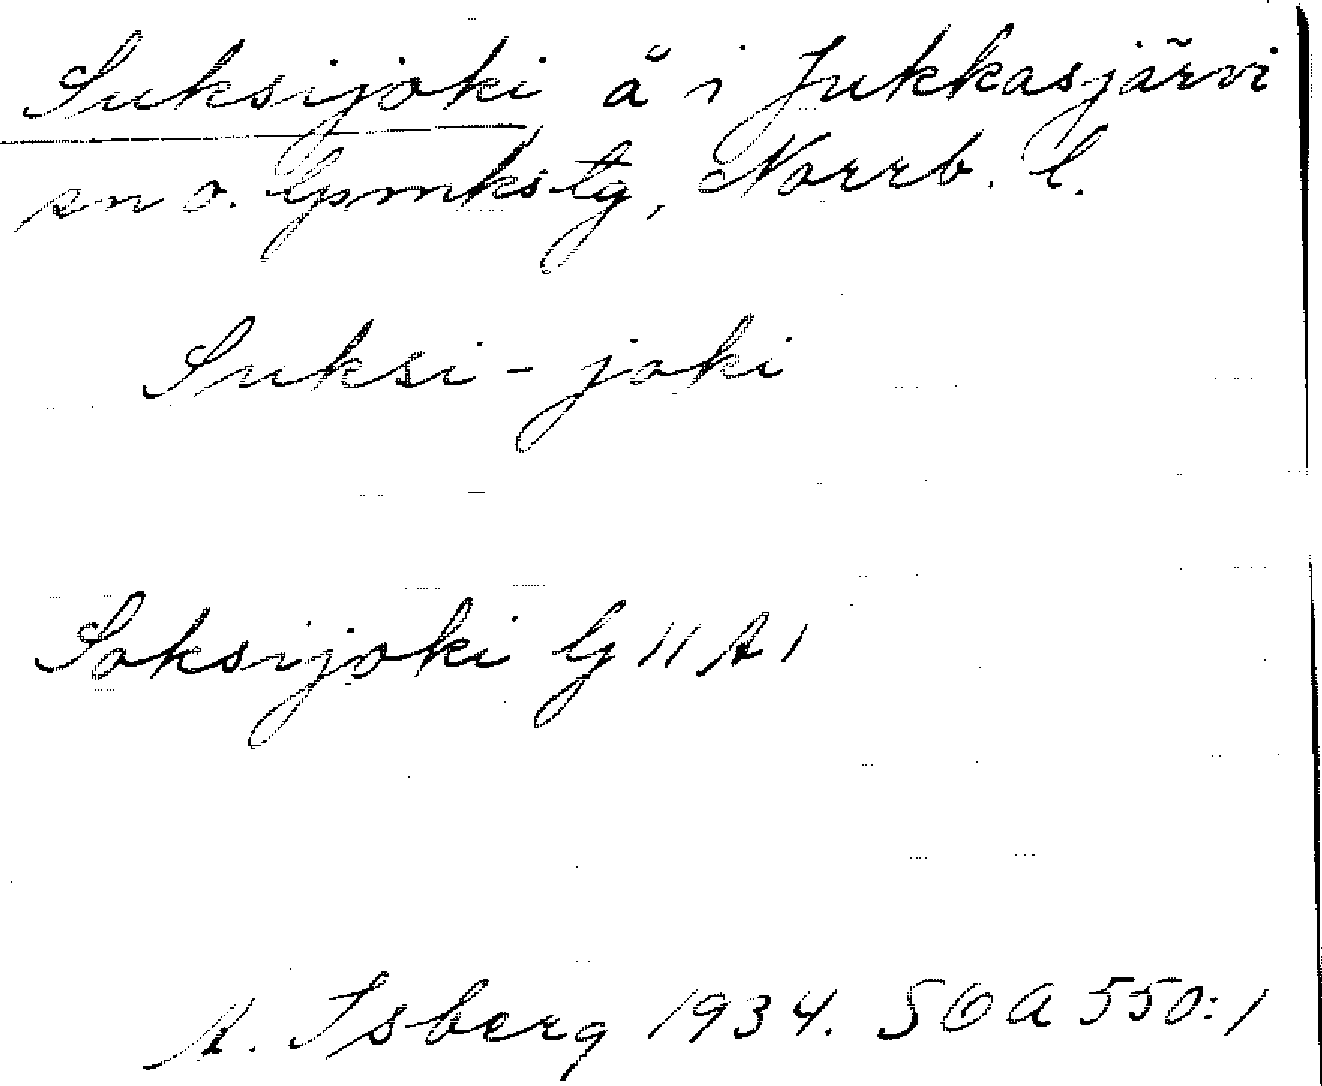 Suksijoki å i Jukkasjärvi
sn o. lpmkstg, Norrb. l.
Suksi-joki
Soksijoki G 11 A 1
A. Isberg 1934. SOA 550:1